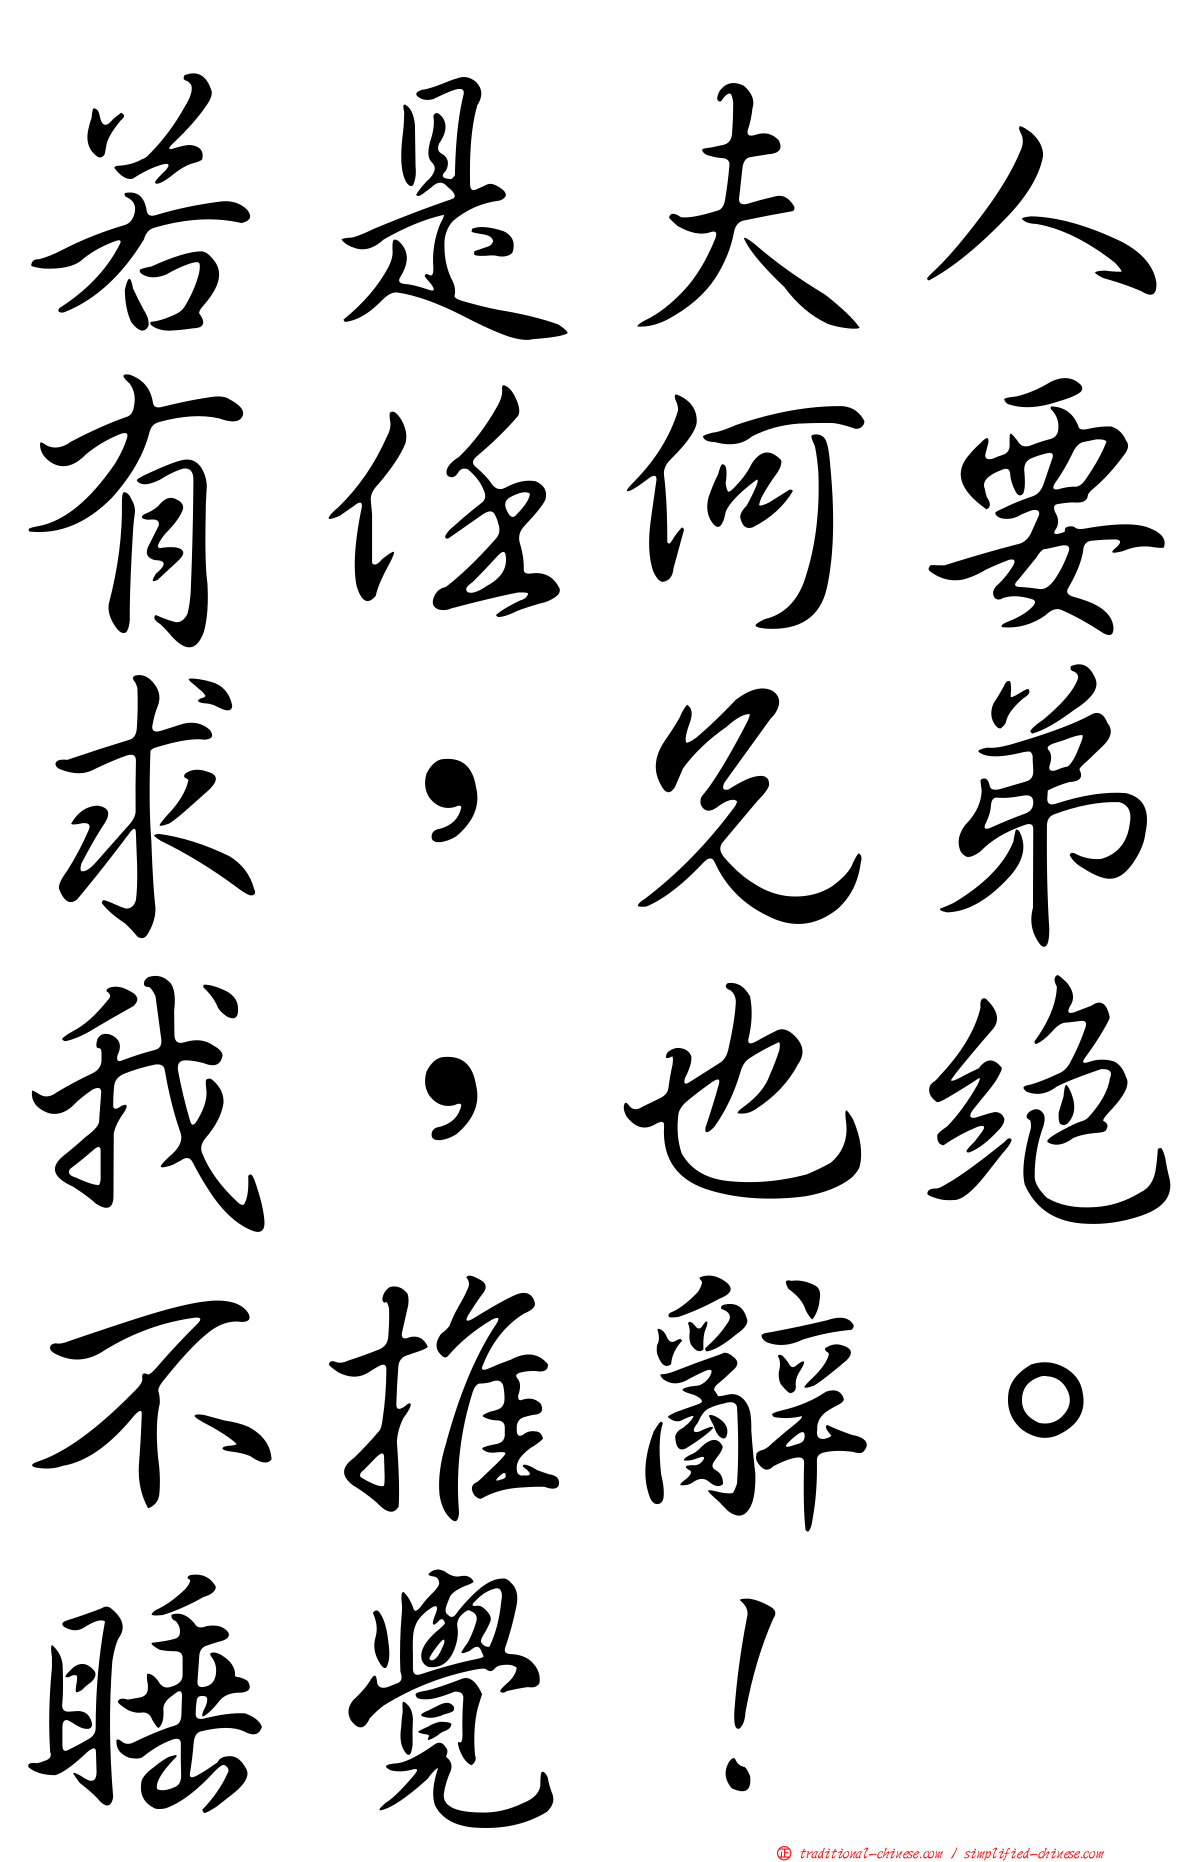 若是夫人
有任何要
求，兄弟
我，也絕
不推辭。
睡覺！
正 traditional-chinese.com / simplified-chinese.com